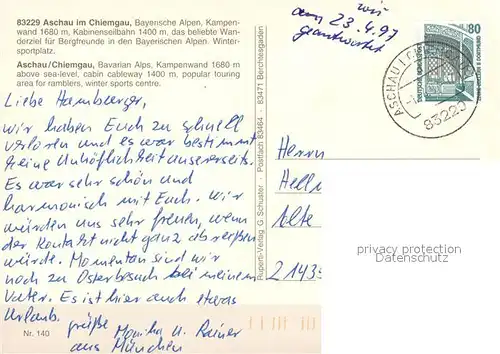 83229 Aschau im Chiemgau, Bayerische Alpen, Kampen-
wand 1680 m, Kabinenseilbahn 1400 m, das beliebte Wan-
derziel für Bergfreunde in den Bayerischen Alpen. Winter-
sportplatz.
Aschau/Chiemgau, Bavarian Alps, Kampenwand 1680 m
above sea-level, cabin cableway 1400 m, popular touring
area for ramblers, winter sports centre.
Liebe Hamburger,
wir haben Euch zu schnell
verloren und es war bestimmt
keine Unhöflichkeit unsererseits.
Es war sehr schön und
harmonisch mit Euch. Wir
würden uns sehr freuen, wenn
der Kontakt nicht ganz abreißen
würde. Momentan sind wir
noch zu Osterbesuch bei meinem
Vater. Es ist hier auch etwas
Urlaub.
Grüße Monika u. Rainer
aus München
Nr. 140
Ruperti-Verlag G. Schuster · Postfach 83464 · 83471 Berchtesgaden
wir
am 23.4.97
geantwortet
80
ASCHAU I
83229
Herrn
Hell
Alte
21435
privacy protection
Datenschutz